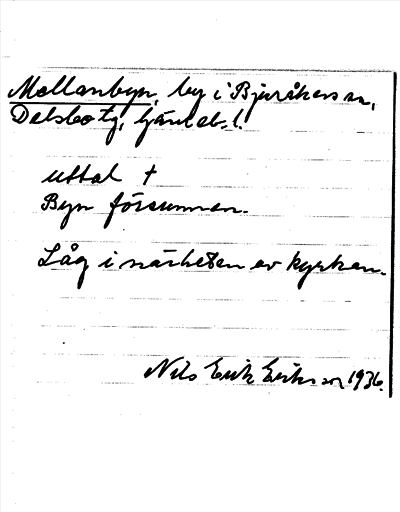 Mellanbyn, by i Bjuråkers sn,
Delsbo tg, Gävleb. l.
uttal †
Byn försvunnen.
Låg i närheten av kyrkan.
Nils Erik Eriksson 1936.